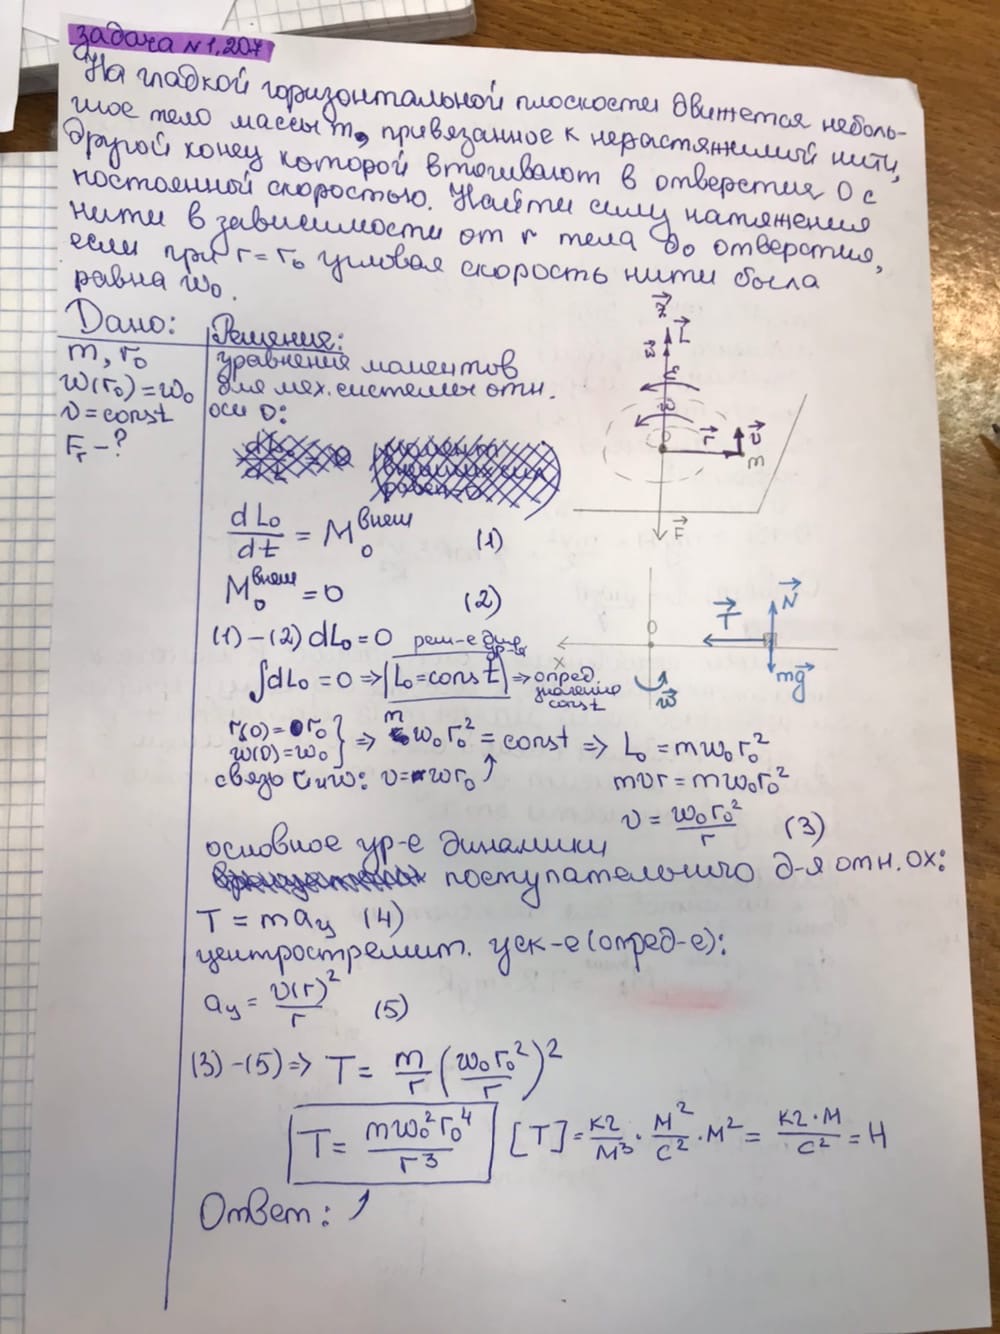 задача №1.207
На гладкой горизонтальной плоскости движется неболь-
шое тело массы m, привязанное к нерастяжимой нити,
другой конец которой втягивают в отверстия O с
постоянной скоростью. Найти силу натяжения
нити в зависимости от r тела до отверстия,
если при r = r₀ угловая скорость нити была
равна ω₀.
Дано:
m, r₀
ω(r₀)=ω₀
υ=const
Fᵣ - ?
Решение:
уравнения моментов
для мех. системы отн.
оси O:
dL₀/dt = M₀^внеш (1)
M₀^внеш = 0 (2)
(1)-(2) dL₀=0 реш-е диф. ур-я
∫dL₀ = 0 ⇒ L₀=const ⇒ опред. значение const
r(0)=r₀
ω(0)=ω₀ ⇒ mω₀r₀² = const ⇒ L₀ = mω₀r₀²
связь υ и ω: υ=ωr₀ mυr = mω₀r₀²
υ = ω₀r₀²/r (3)
основное ур-е динамики
поступательного д-я отн. OX:
T = maц (4)
центростремит. уск-е (опред-е):
aц = υ(r)²/r (5)
(3)-(5) ⇒ T = m/r (ω₀r₀²/r)²
T = mω₀²r₀⁴/r³ [T] = кг/м³ · м²/с² · м² = кг·м/с² = Н
Ответ: ↑
z
L
ω
ε
ω
O
r
υ
m
F
O
x
T
N
mg
ω